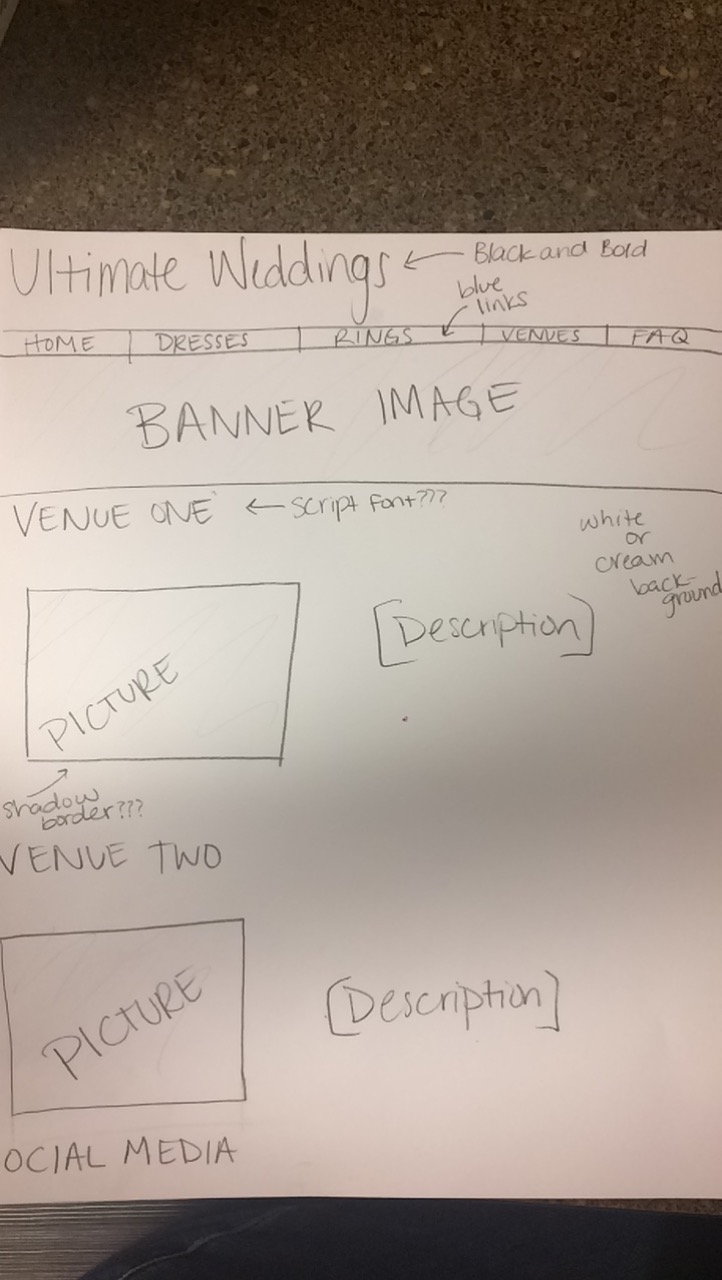 Ultimate Weddings ← Black and Bold
blue
links
HOME DRESSES RINGS VENUES FAQ
BANNER IMAGE
VENUE ONE ← Script Font???
white
or
cream
back-
ground
[Description]
PICTURE
shadow
border???
VENUE TWO
PICTURE
[Description]
OCIAL MEDIA